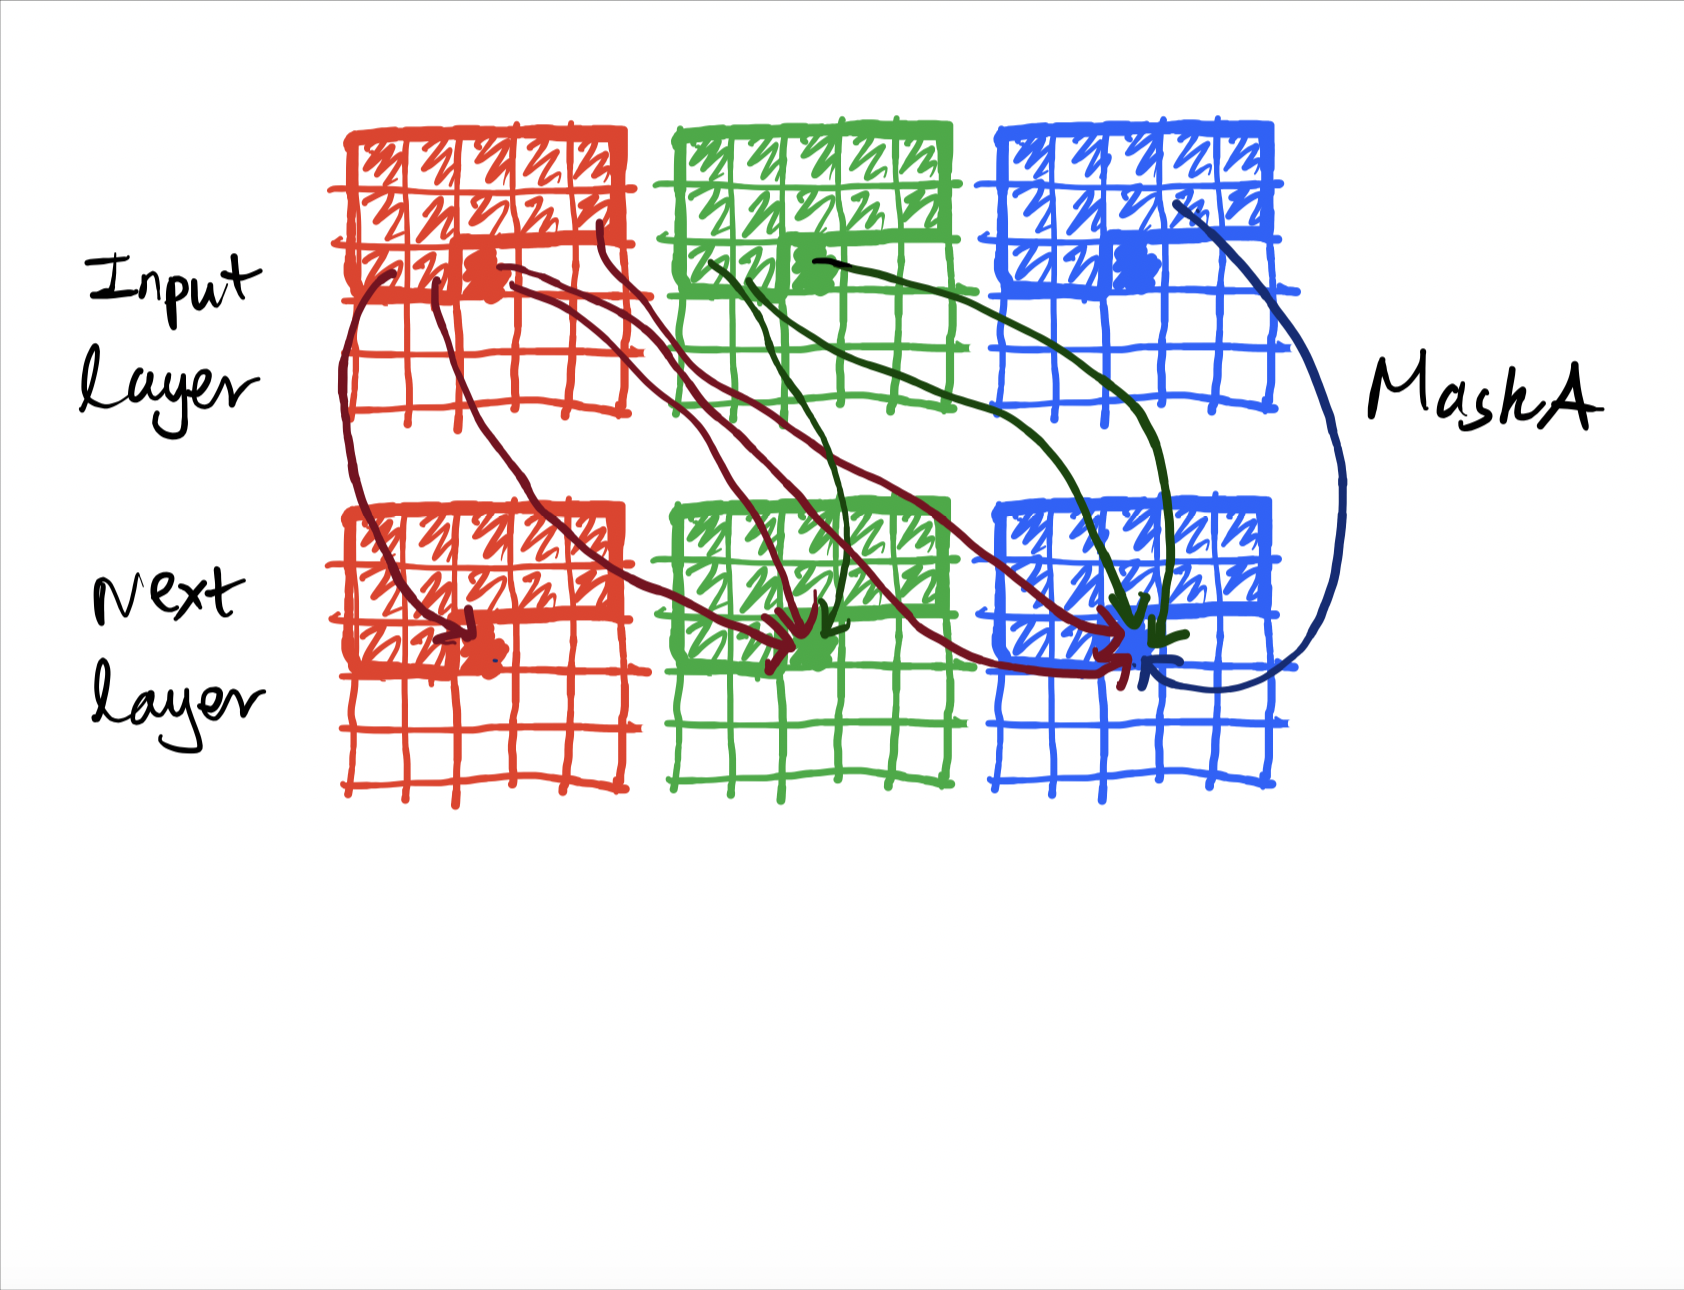 Input
Layer
Mask A
Next
layer